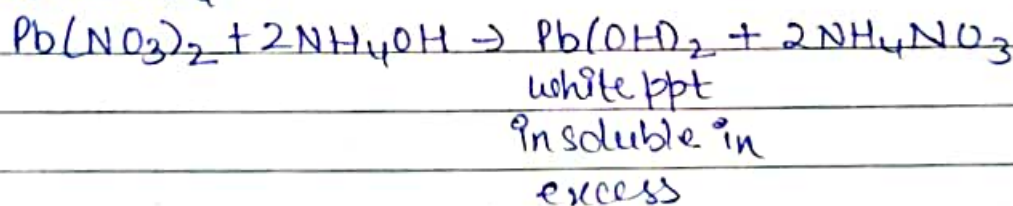 Pb(NO₃)₂ + 2NH₄OH → Pb(OH)₂ + 2NH₄NO₃
white ppt
insoluble in
excess